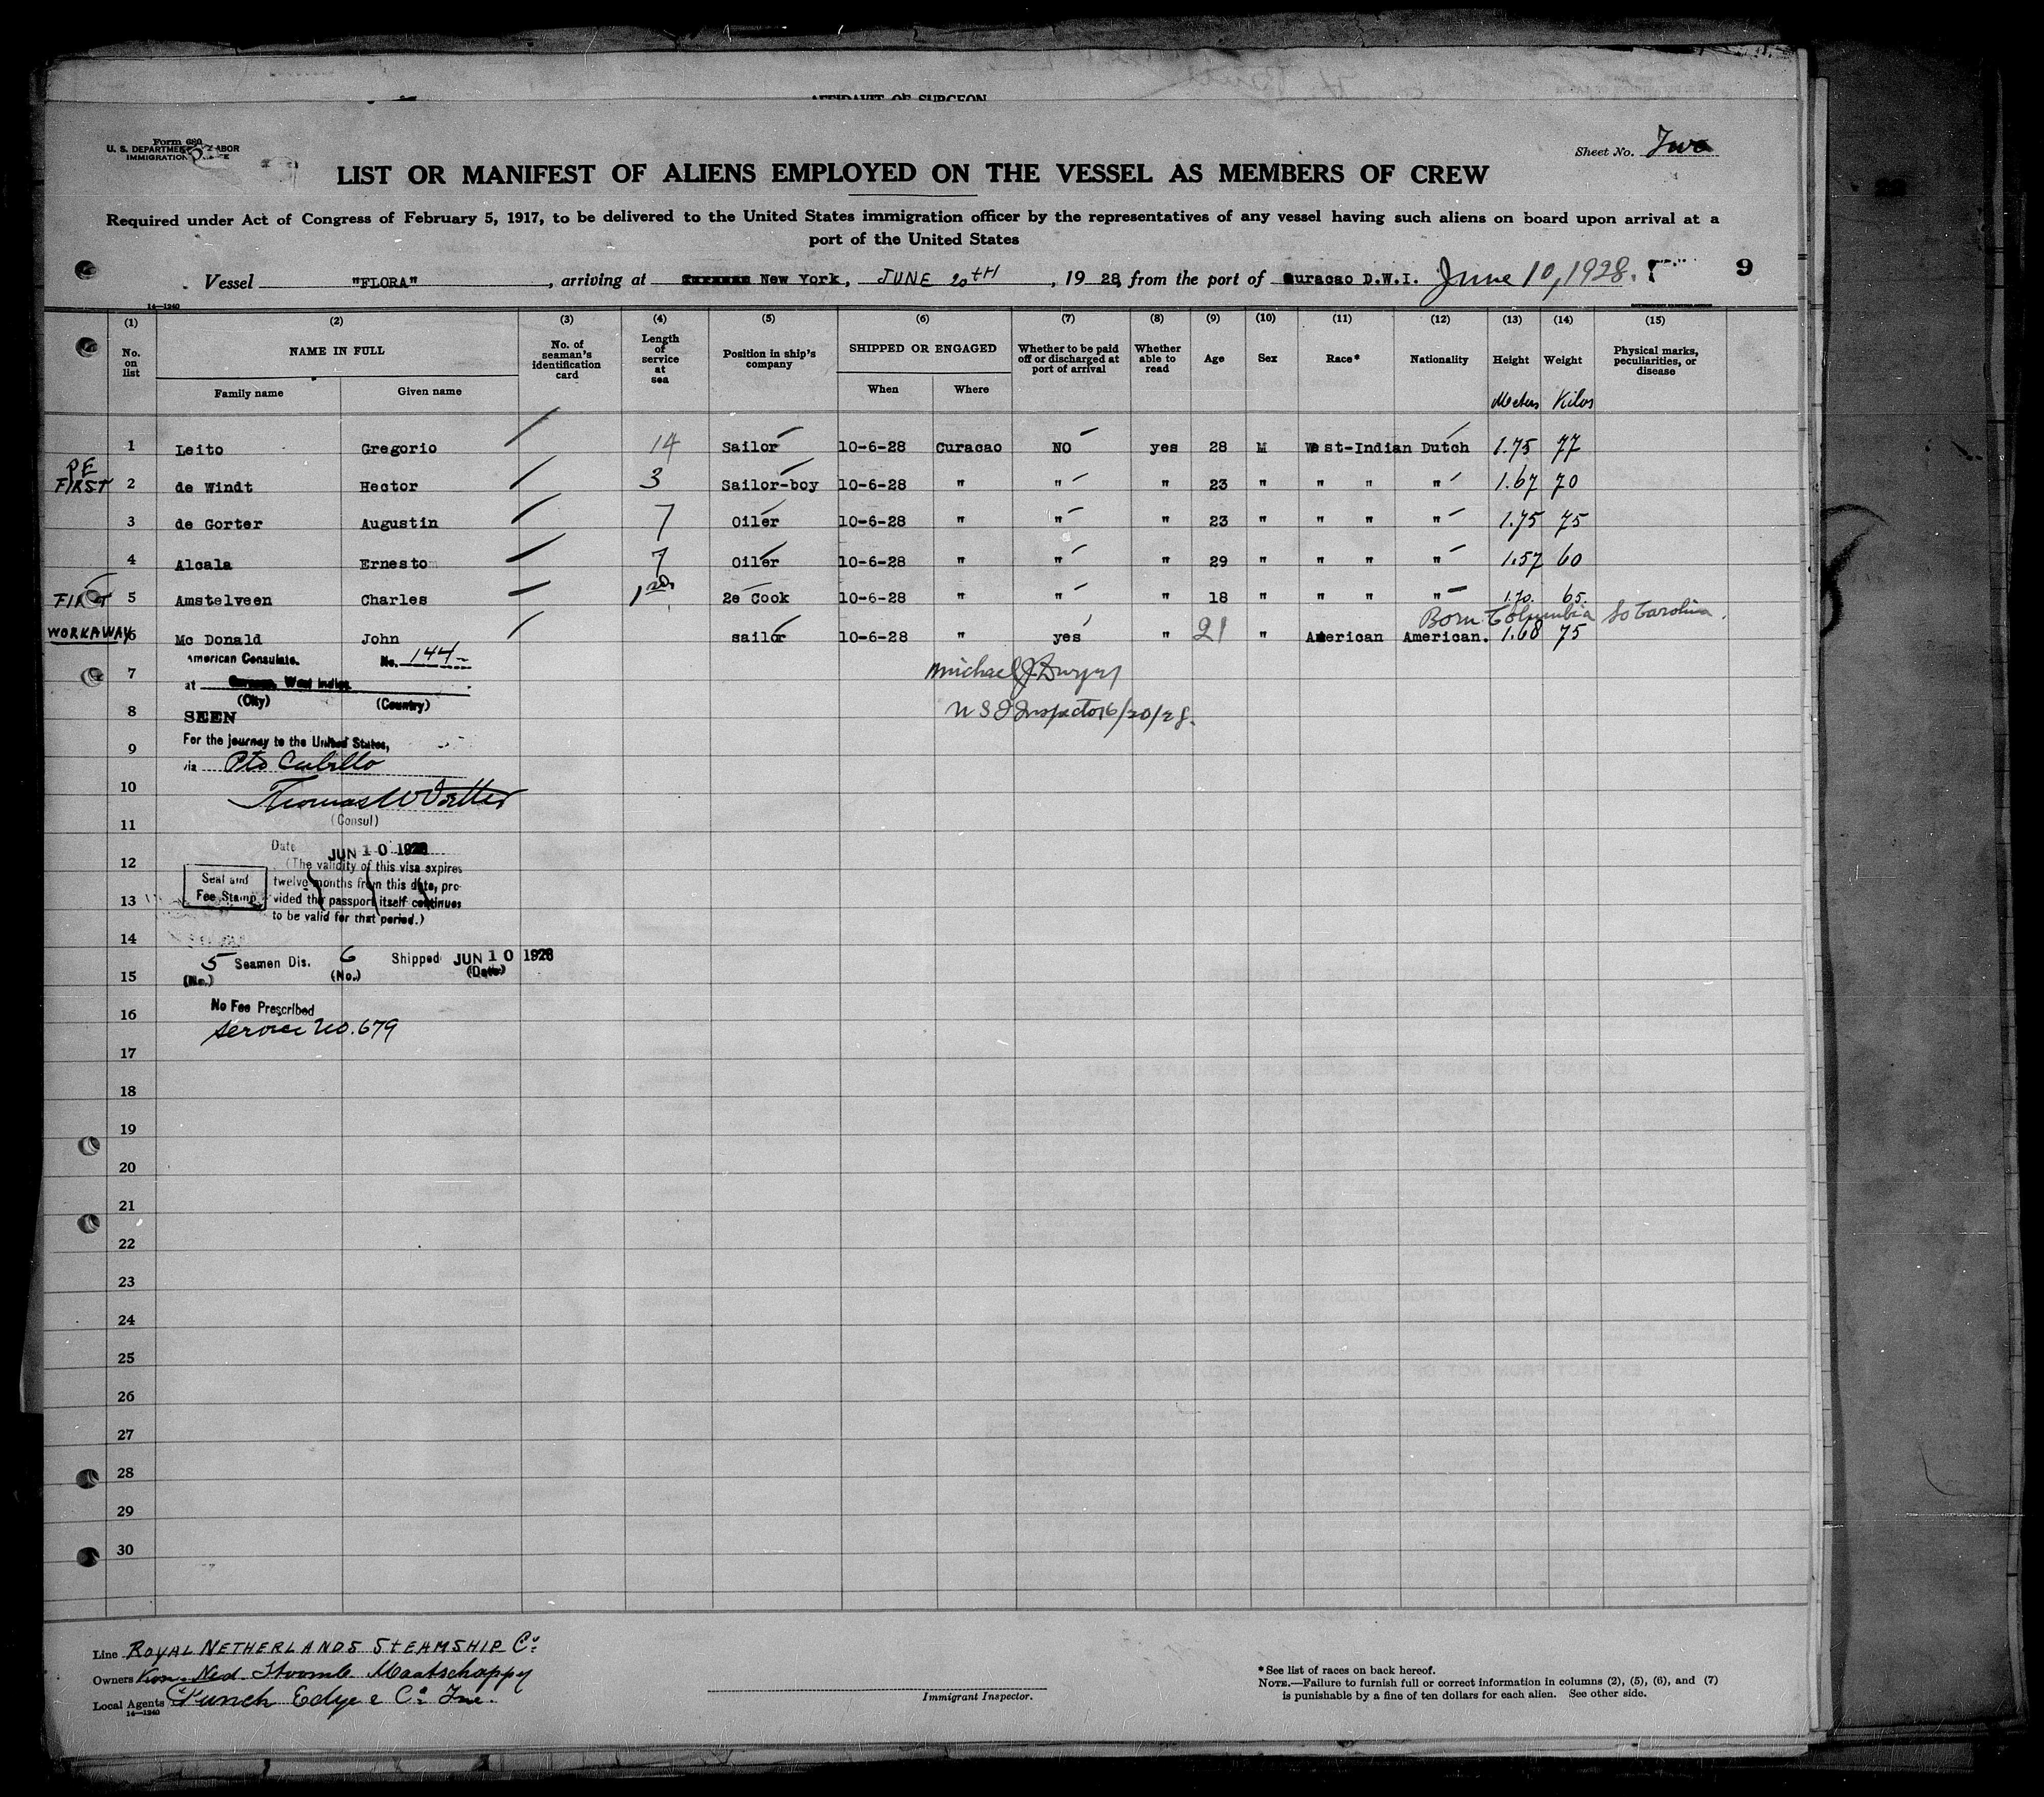 AFFIDAVIT OF SURGEON
Form 680
U. S. DEPARTMENT LABOR
IMMIGRATION
Sheet No. Two
LIST OR MANIFEST OF ALIENS EMPLOYED ON THE VESSEL AS MEMBERS OF CREW
Required under Act of Congress of February 5, 1917, to be delivered to the United States immigration officer by the representatives of any vessel having such aliens on board upon arrival at a
port of the United States
Vessel "FLORA", arriving at New York, JUNE 20th, 1928, from the port of Curacao D.W.I. June 10, 1928. 9
14—1240
(1) (2) (3) (4) (5) (6) (7) (8) (9) (10) (11) (12) (13) (14) (15)
No. on list NAME IN FULL No. of seaman's identification card Length of service at sea Position in ship's company SHIPPED OR ENGAGED Whether to be paid off or discharged at port of arrival Whether able to read Age Sex Race* Nationality Height Weight Physical marks, peculiarities, or disease
Family name Given name When Where Meters Kilos
1 Leito Gregorio 14 Sailor 10-6-28 Curacao NO yes 28 M West-Indian Dutch 1.75 77
PE FIRST 2 de Windt Hector 3 Sailor-boy 10-6-28 " " " 23 " " " " 1.67 70
3 de Gorter Augustin 7 Oiler 10-6-28 " " " 23 " " " " 1.75 75
4 Alcala Ernesto 7 Oiler 10-6-28 " " " 29 " " " " 1.57 60
FIRST 5 Amstelveen Charles 1 2e Cook 10-6-28 " " " 18 " " " " 1.70. 65.
Born Columbia So Carolina.
WORKAWAY 6 Mc Donald John sailor 10-6-28 " yes " 21 " American American. 1.68 75
American Consulate. No. 144
7 Michael J. Dwyer
at Curacao, West Indies
(City) (Country)
8 U S I Inspector 6/20/28.
SEEN
For the journey to the United States,
9
via Pto Cabello
10
Thomas W
(Consul)
11
Date JUN 10 1928
12
(The validity of this visa expires
twelve months from this date, pro-
vided the passport itself continues
to be valid for that period.)
Seal and
Fee Stamp
13
14
5 Seamen Dis. 6 Shipped JUN 10 1928
(No.) (No.) (Date)
15
No Fee Prescribed
16
Service No. 679
17
18
19
20
21
22
23
24
25
26
27
28
29
30
Line ROYAL NETHERLANDS STEAMSHIP Co.
Owners Kon. Ned. Stoomb. Maatschappy
Local Agents Funch Edye & Co. Inc.
14—1240
Immigrant Inspector.
*See list of races on back hereof.
NOTE.—Failure to furnish full or correct information in columns (2), (5), (6), and (7)
is punishable by a fine of ten dollars for each alien. See other side.